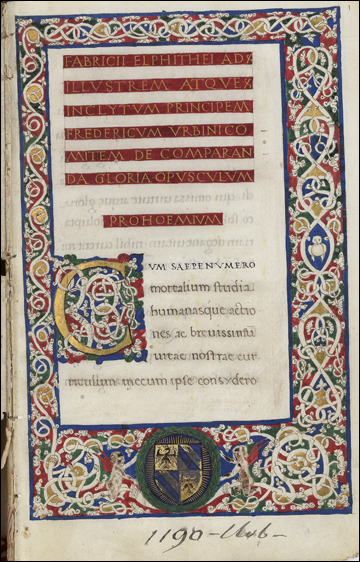 FABRICII ELPHITHEI AD
ILLVSTREM ATQVE
INCLYTVM PRINCIPEM
FREDERICVM VRBINI CO
MITEM DE COMPARAN
DA GLORIA OPVSCVLVM
PROHOEMIVM
CVM SAEPENVMERO
mortalium studia
humanasque actio
nes ac breuissimū
uitae nostrae cur
riculum mecum ipse consydero
1190